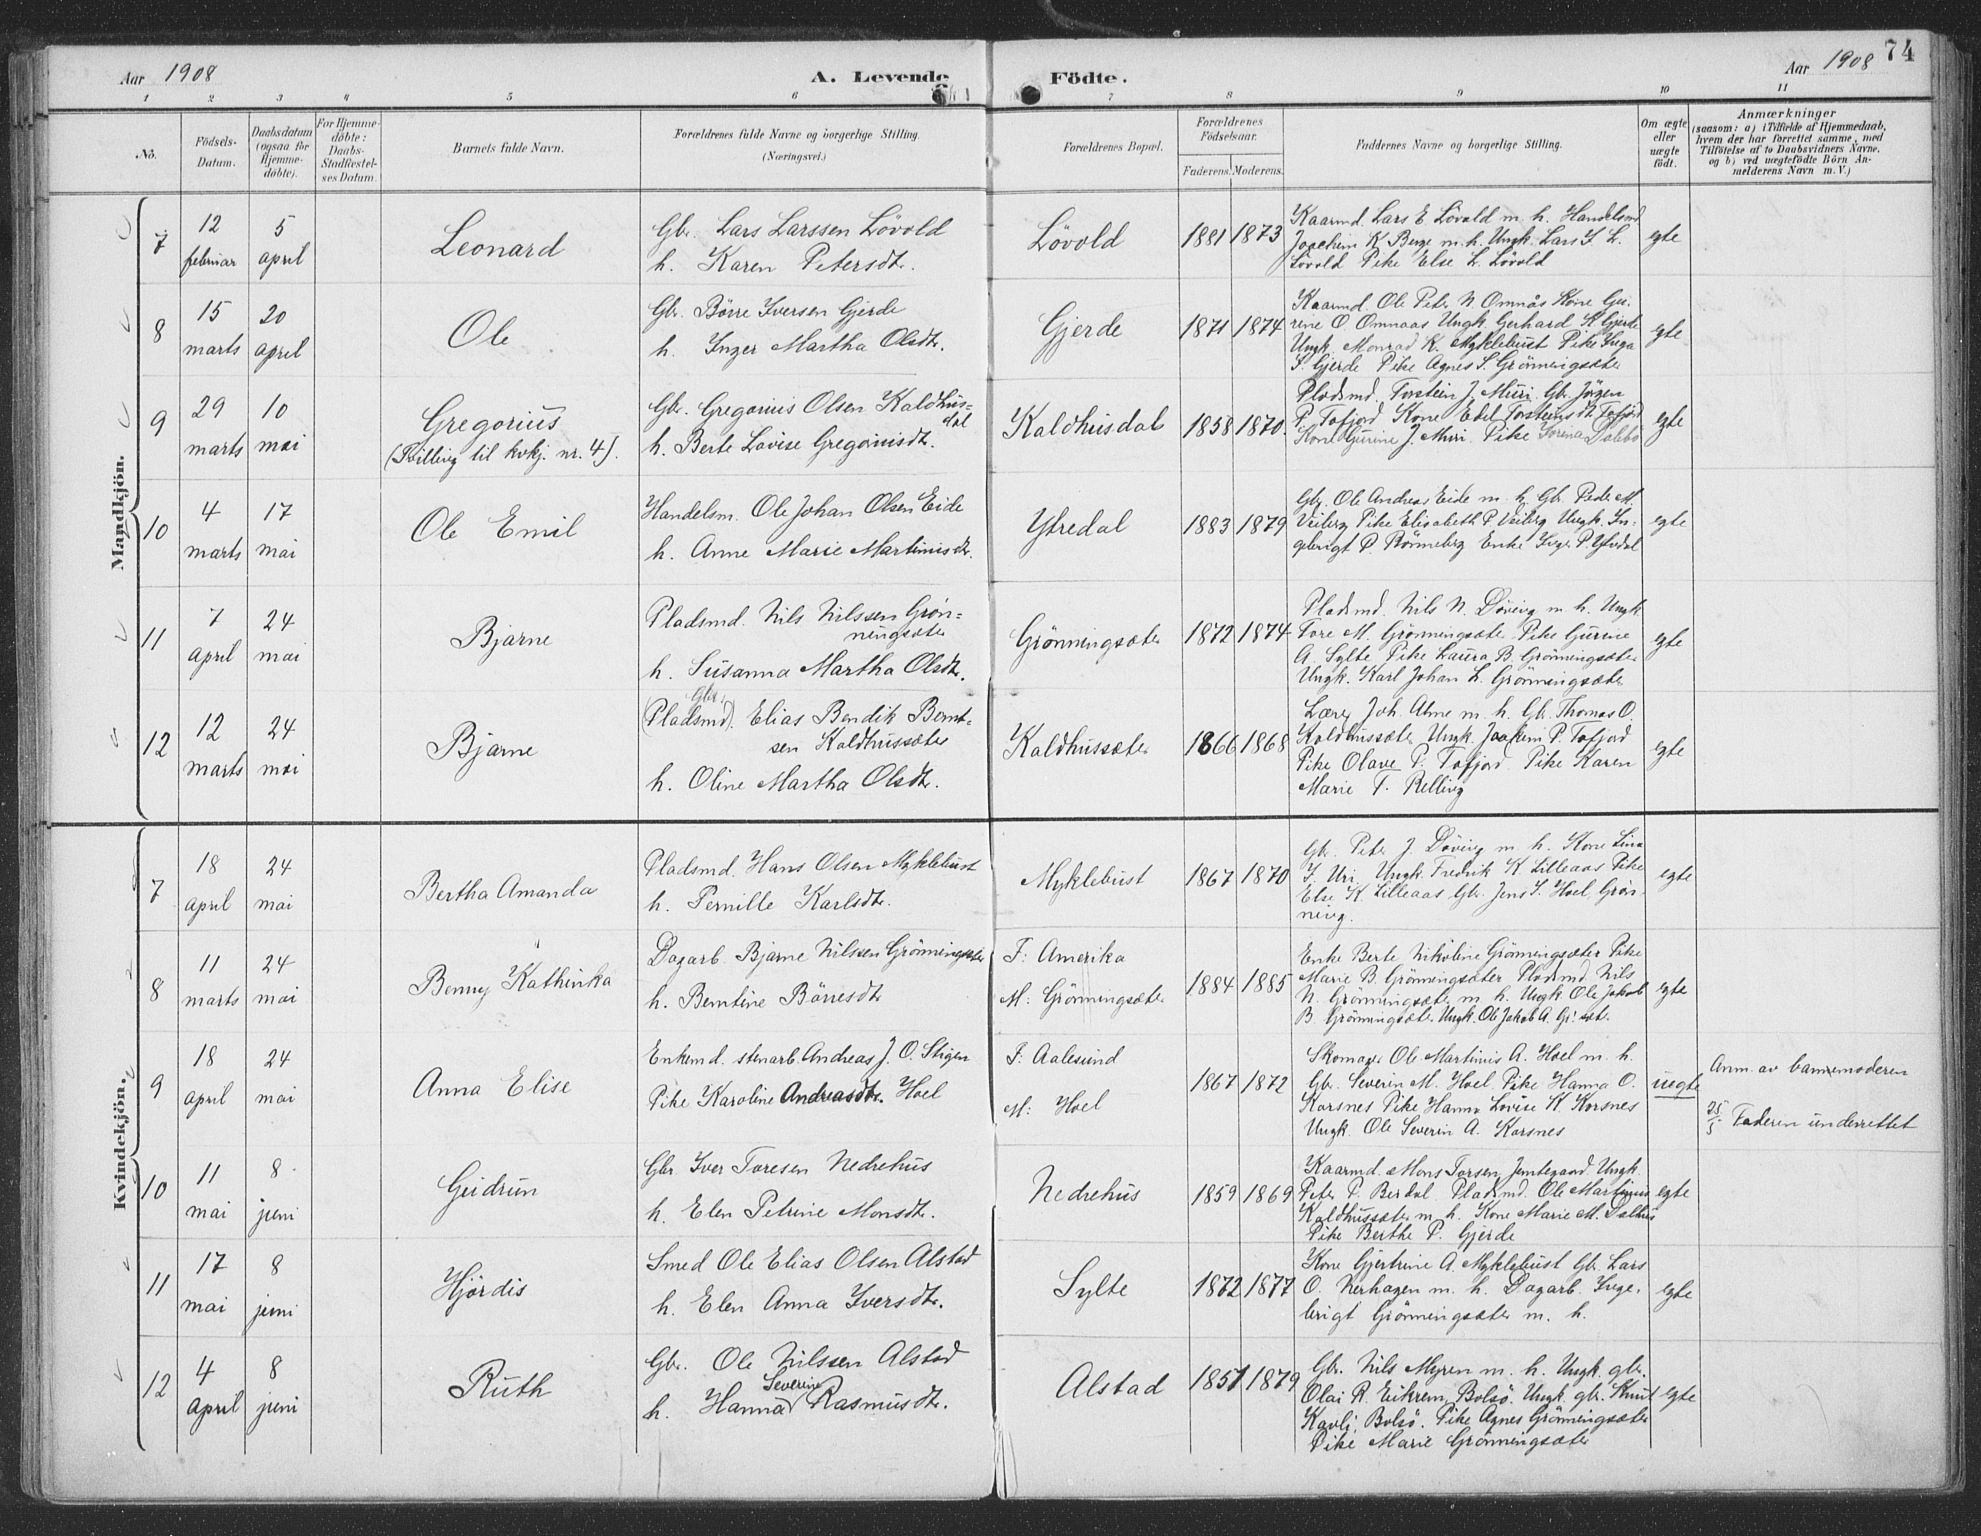 74
Aar 1908
A. Levende
Födte.
Aar 1908
1 2 3 4 5 6 7 8 9 10 11
No.
Födsels-
Datum.
Daabsdatum
(ogsaa for
Hjemme-
döbte).
For Hjemme-
döbte:
Daabs-
Stadfæstel-
ses Datum.
Barnets fulde Navn.
Forældrenes fulde Navne og borgerlige Stilling.
(Næringsvei.)
Forældrenes Bopæl.
Forældrenes
Födselsaar.
Faderens. Moderens.
Faddernes Navne og borgerlige Stilling.
Om ægte
eller
uægte
födt.
Anmærkninger
(saasom: a) i Tilfælde af Hjemmedaab,
hvem der har forrettet samme, med
Tilföielse af to Daabsvidners Navne,
og b) ved uægtefödte Börn An-
melderens Navn m. V.)
Mandkjön.
7
12
februar
5
april
Leonard
Gbr. Lars Larssen Lövold
h. Karen Petersdtr.
Lövold
1881 1873
Kaarmd. Lars E. Lövold m. h. Handelsmd
Joachim K. Berge m. h. Ungk. Lars S. L.
Lövold Pike Else L. Lövold
egte
8
15
marts
20
april
Ole
Gbr. Börre Iversen Gjerde
h. Inger Martha Olsdtr.
Gjerde
1871 1874
Kaarmd. Ole Peter N. Omnås Kone Gu-
rine O. Omnaas Ungk. Gerhard K. Gjerde
Ungk. Monrad K. Myklebust Pike Inga
S. Gjerde Pike Agnes S. Grönningsæter
egte
9
29
marts
10
mai
Gregorius
(Tvilling til kvkj. nr. 4).
Gbr. Gregorius Olsen Kaldhus-
dal
h. Berte Lovise Gregoriusdtr.
Kaldhusdal
1858 1870
Pladsmd. Torstein J. Muri. Gbr. Jörgen
P. Tafjord Kone Edel Torsteinsdtr Tafjord
Kone Gurine J. Muri. Pike Dalebö
egte
10
4
marts
17
mai
Ole Emil
Handelsm. Ole Johan Olsen Eide
h. Anne Marie Martinusdtr.
Ytredal
1883 1879
Gbr. Ole Andreas Eide m. h. Gbr. Peder M.
Veiberg Pike Elisabeth P. Veiberg Ungk. In-
gebrigt P. Rönneberg Enke Inger P. Ytredal
egte
11
7
april
24
mai
Bjarne
Pladsmd. Nils Nilssen Grön-
ningsæter
h. Susanna Martha Olsdtr.
Grönningsæter
1872 1874
Pladsmd. Nils N. Döving m. h. Ungk.
Tore M. Grönningsæter Pike Gurine
A. Sylte Pike Laura B. Grönningsæter
Ungk. Karl Johan L. Grönningsæter
egte
12
12
marts
24
mai
Bjarne
Gbr.
(Pladsmd). Elias Bendik Bernt-
sen Kaldhussæter
h. Oline Martha Olsdtr.
Kaldhussæter
1866 1868
Lærer Joh. Alme m. h. Gbr. Thomas O.
Kaldhussæter Ungk. Joakim P. Tafjord
Pike Olave P. Tafjord. Pike Karen
Marie T. Relling
egte
Kvindekjön.
7
18
april
24
mai
Bertha Amanda
Pladsmd. Hans Olsen Myklebust
h. Pernille Karlsdtr.
Myklebust
1867 1870
Gbr. Peter J. Döving m. h. Kone Lina
I. Uri Ungk. Fredrik K. Lilleaas Pike
Else K. Lilleaas Gbr. Jens S. Hoel, Grön-
ning.
egte
8
11
marts
24
mai
Benny Kathinka
Dagarb. Bjarne Nilssen Grönningsæter
h. Berntine Börresdtr
F: Amerika
M: Grönningsæter
1884 1885
Enke Berte Nikoline Grönningsæter Pike
Marie B. Grönningsæter Pladsmd. Nils
N. Grönningsæter m. h. Ungk. Ole Jakob
B. Grönningsæter Ungk. Ole Jakob A. Gr: sæter
egte
9
18
april
24
mai
Anna Elise
Enkemd. stenarb. Andreas J. O. Stigen
Pike Karoline Andreasdtr. Hoel
F: Aalesund
M: Hoel
1867 1872
Skomager Ole Martinus A. Hoel m. h.
Gbr. Severin M. Hoel. Pike Hanna O.
Korsnes Pike Hanna Lovise K. Korsnes
Ungk. Ole Severin A. Korsnes
uegte
Anm. av barnemoderen
25/5 Faderen underrettet
10
11
mai
8
juni
Gudrun
Gbr Iver Toresen Nedrehus
h. Elen Petrine Monsdtr.
Nedrehus
1859 1869
Kaarmd. Mons Torsen Jemtegaard Ungk.
Peter P. Berdal. Pladsmd. Ole Martinus
Kaldhussæter m. h. Kone Marie M. Dalhus
Pike Berthe P. Gjerde
egte
11
17
mai
8
juni
Hjördis
Smed Ole Elias Olsen Alstad
h. Elen Anna Iversdtr.
Sylte
1872 1877
Kone Gjertrine A. Myklebust Gbr. Lars
O. Nerhagen m. h. Dagarb. Inge-
brigt Grönningsæter m. h.
egte
12
4
april
8
juni
Ruth
Gbr. Ole Nilssen Alstad
Severine
h. Hanna Rasmusdtr.
Alstad
1851 1879
Gbr. Nils Myren m. h. Ungk. gbr.
Olai R. Eikrem, Bolsö. Ungk. gbr. Knut
Kavli, Bolsö. Pike Agnes Grönningsæter
Pike Marie Grönningsæter
egte